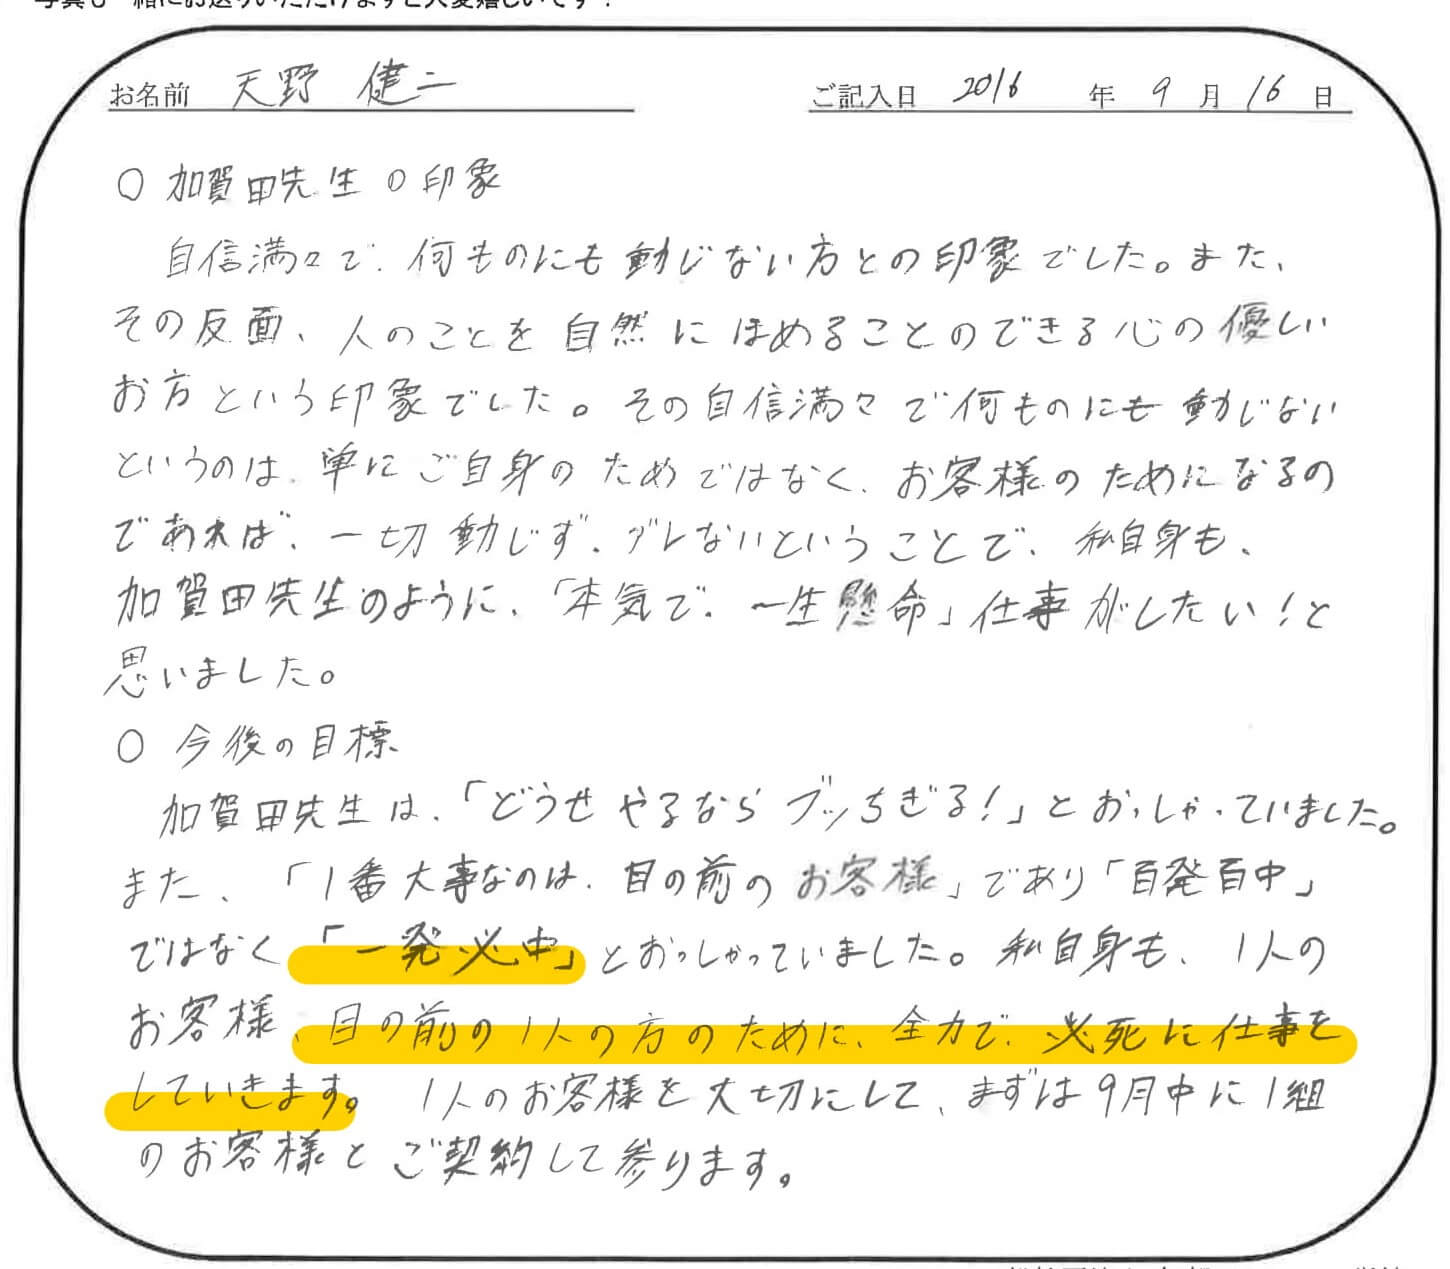 写真も一緒にお送りいただけますと大変嬉しいです！
お名前 天野 健二 ご記入日 2016 年 9 月 16 日
○ 加賀田先生の印象
自信満々で、何ものにも動じない方との印象でした。また、
その反面、人のことを自然にほめることのできる心の優しい
お方という印象でした。その自信満々で何ものにも動じない
というのは、単にご自身のためではなく、お客様のためになるの
であれば、一切動じず、ブレないということで、私自身も、
加賀田先生のように、「本気で、一生懸命」仕事がしたい！と
思いました。
○ 今後の目標
加賀田先生は、「どうせやるならブッちぎる！」とおっしゃっていました。
また、「1番大事なのは、目の前のお客様」であり「百発百中」
ではなく「一発必中」とおっしゃっていました。私自身も、1人の
お客様、目の前の1人の方のために、全力で、必死に仕事を
していきます。1人のお客様を大切にして、まずは9月中に1組
のお客様とご契約して参ります。